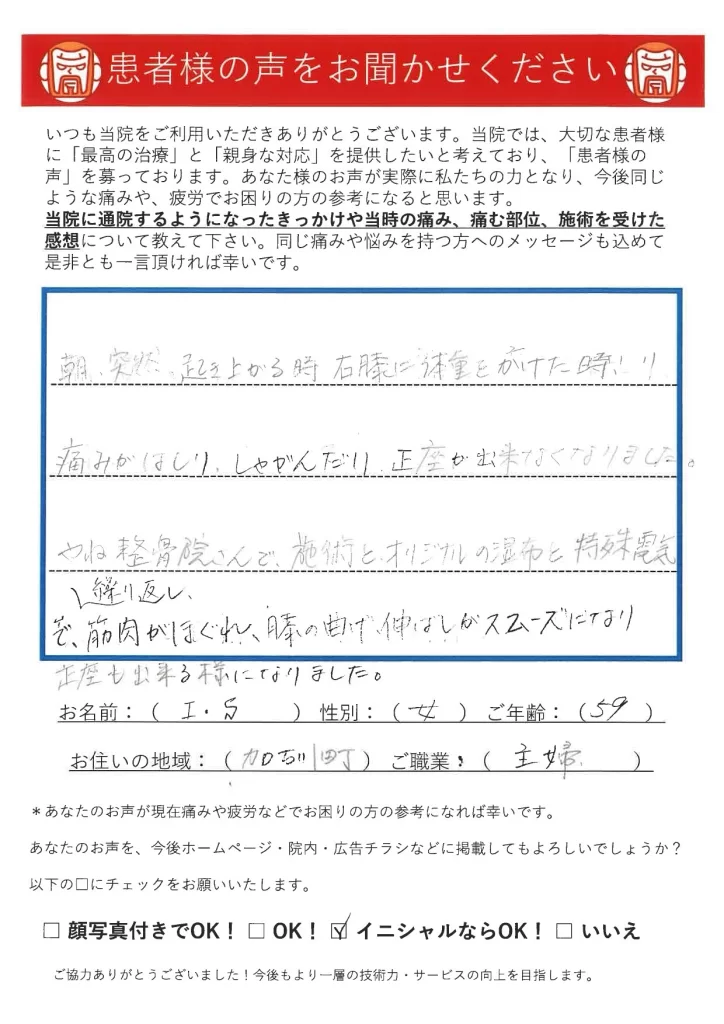 患者様の声をお聞かせください
いつも当院をご利用いただきありがとうございます。当院では、大切な患者様
に「最高の治療」と「親身な対応」を提供したいと考えており、「患者様の
声」を募っております。あなた様のお声が実際に私たちの力となり、今後同じ
ような痛みや、疲労でお困りの方の参考になると思います。
当院に通院するようになったきっかけや当時の痛み、痛む部位、施術を受けた
感想について教えて下さい。同じ痛みや悩みを持つ方へのメッセージも込めて
是非とも一言頂ければ幸いです。
朝、突然、起き上がる時 右膝に体重をかけた時、
痛みがはしり、しゃがんだり、正座が出来なくなりました。
やね整骨院さんで、施術と、オリジナルの湿布と特殊電気
繰り返し、
で、筋肉がほぐれ、膝の曲げ、伸ばしがスムーズになり
正座も出来る様になりました。
お名前：（ I・S ） 性別：（ 女 ） ご年齢：（ 59 ）
お住いの地域：（ 加古川町 ） ご職業：（ 主婦 ）
＊あなたのお声が現在痛みや疲労などでお困りの方の参考になれば幸いです。
あなたのお声を、今後ホームページ・院内・広告チラシなどに掲載してもよろしいでしょうか？
以下の□にチェックをお願いいたします。
□ 顔写真付きでOK！ □ OK！ ☑ イニシャルならOK！ □ いいえ
ご協力ありがとうございました！今後もより一層の技術力・サービスの向上を目指します。